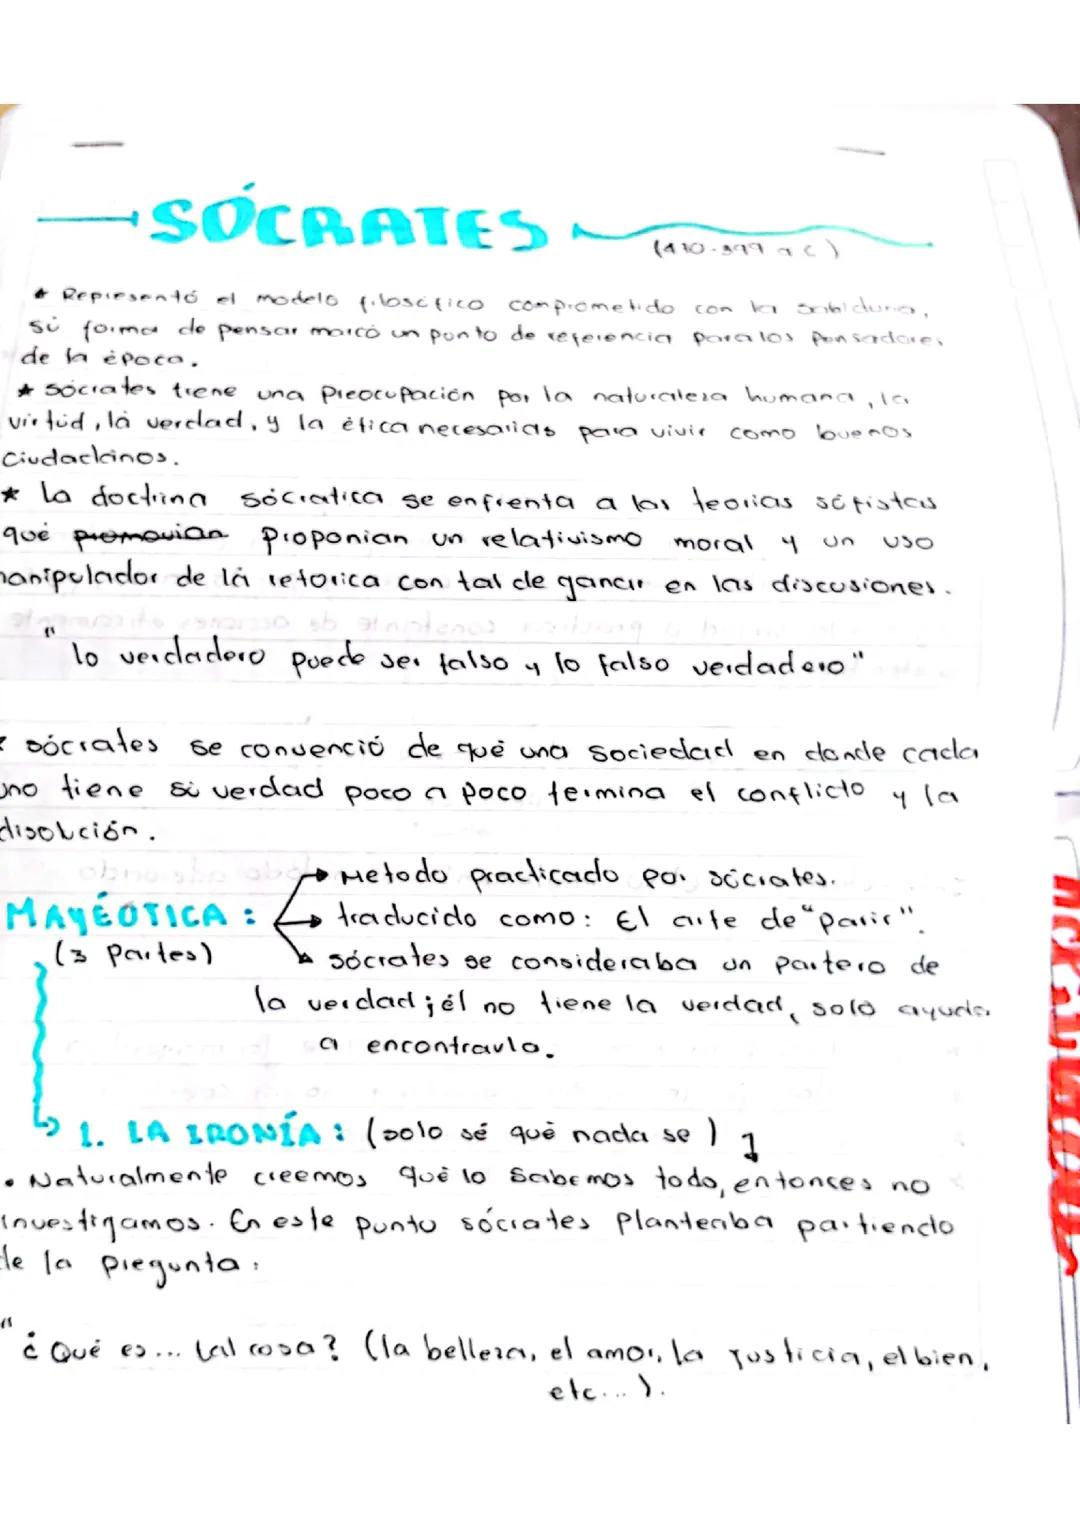 SÓCRATES
(470-399 a C)
★ Representó el modelo filosófico comprometido con la sabiduria,
sú forma de pensar marcó un punto de referencia para los Pensadores
de la época.
★ sócrates tiene una Preocupación por la naturaleza humana, la
virtud, la verdad, y la ética necesarias para vivir como buenos
Ciudadanos.
★ La doctrina sócratica se enfrenta a las teorias sófistas
qué promovian Proponian un relativismo moral y un uso
manipulador de la retorica con tal de ganar en las discusiones.
"lo verdadero puede ser falso y lo falso verdadero"
sócrates se convenció de qué una sociedad en donde cada
uno tiene sú verdad poco a poco termina el conflicto y la
disolución.
→ Metodo practicado por sócrates.
MAYÉOTICA: → traducido como: El arte de "parir".
(3 Partes) sócrates se consideraba un partero de
la verdad; él no tiene la verdad, solo ayuda
a encontrarla.
1. LA IRONÍA: (solo sé qué nada se)
• Naturalmente creemos qué lo sabemos todo, entonces no
investigamos. En este punto sócrates Planteaba partiendo
de la pregunta:
"¿Qué es... tal cosa? (la belleza, el amor, la justicia, el bien,
etc...).